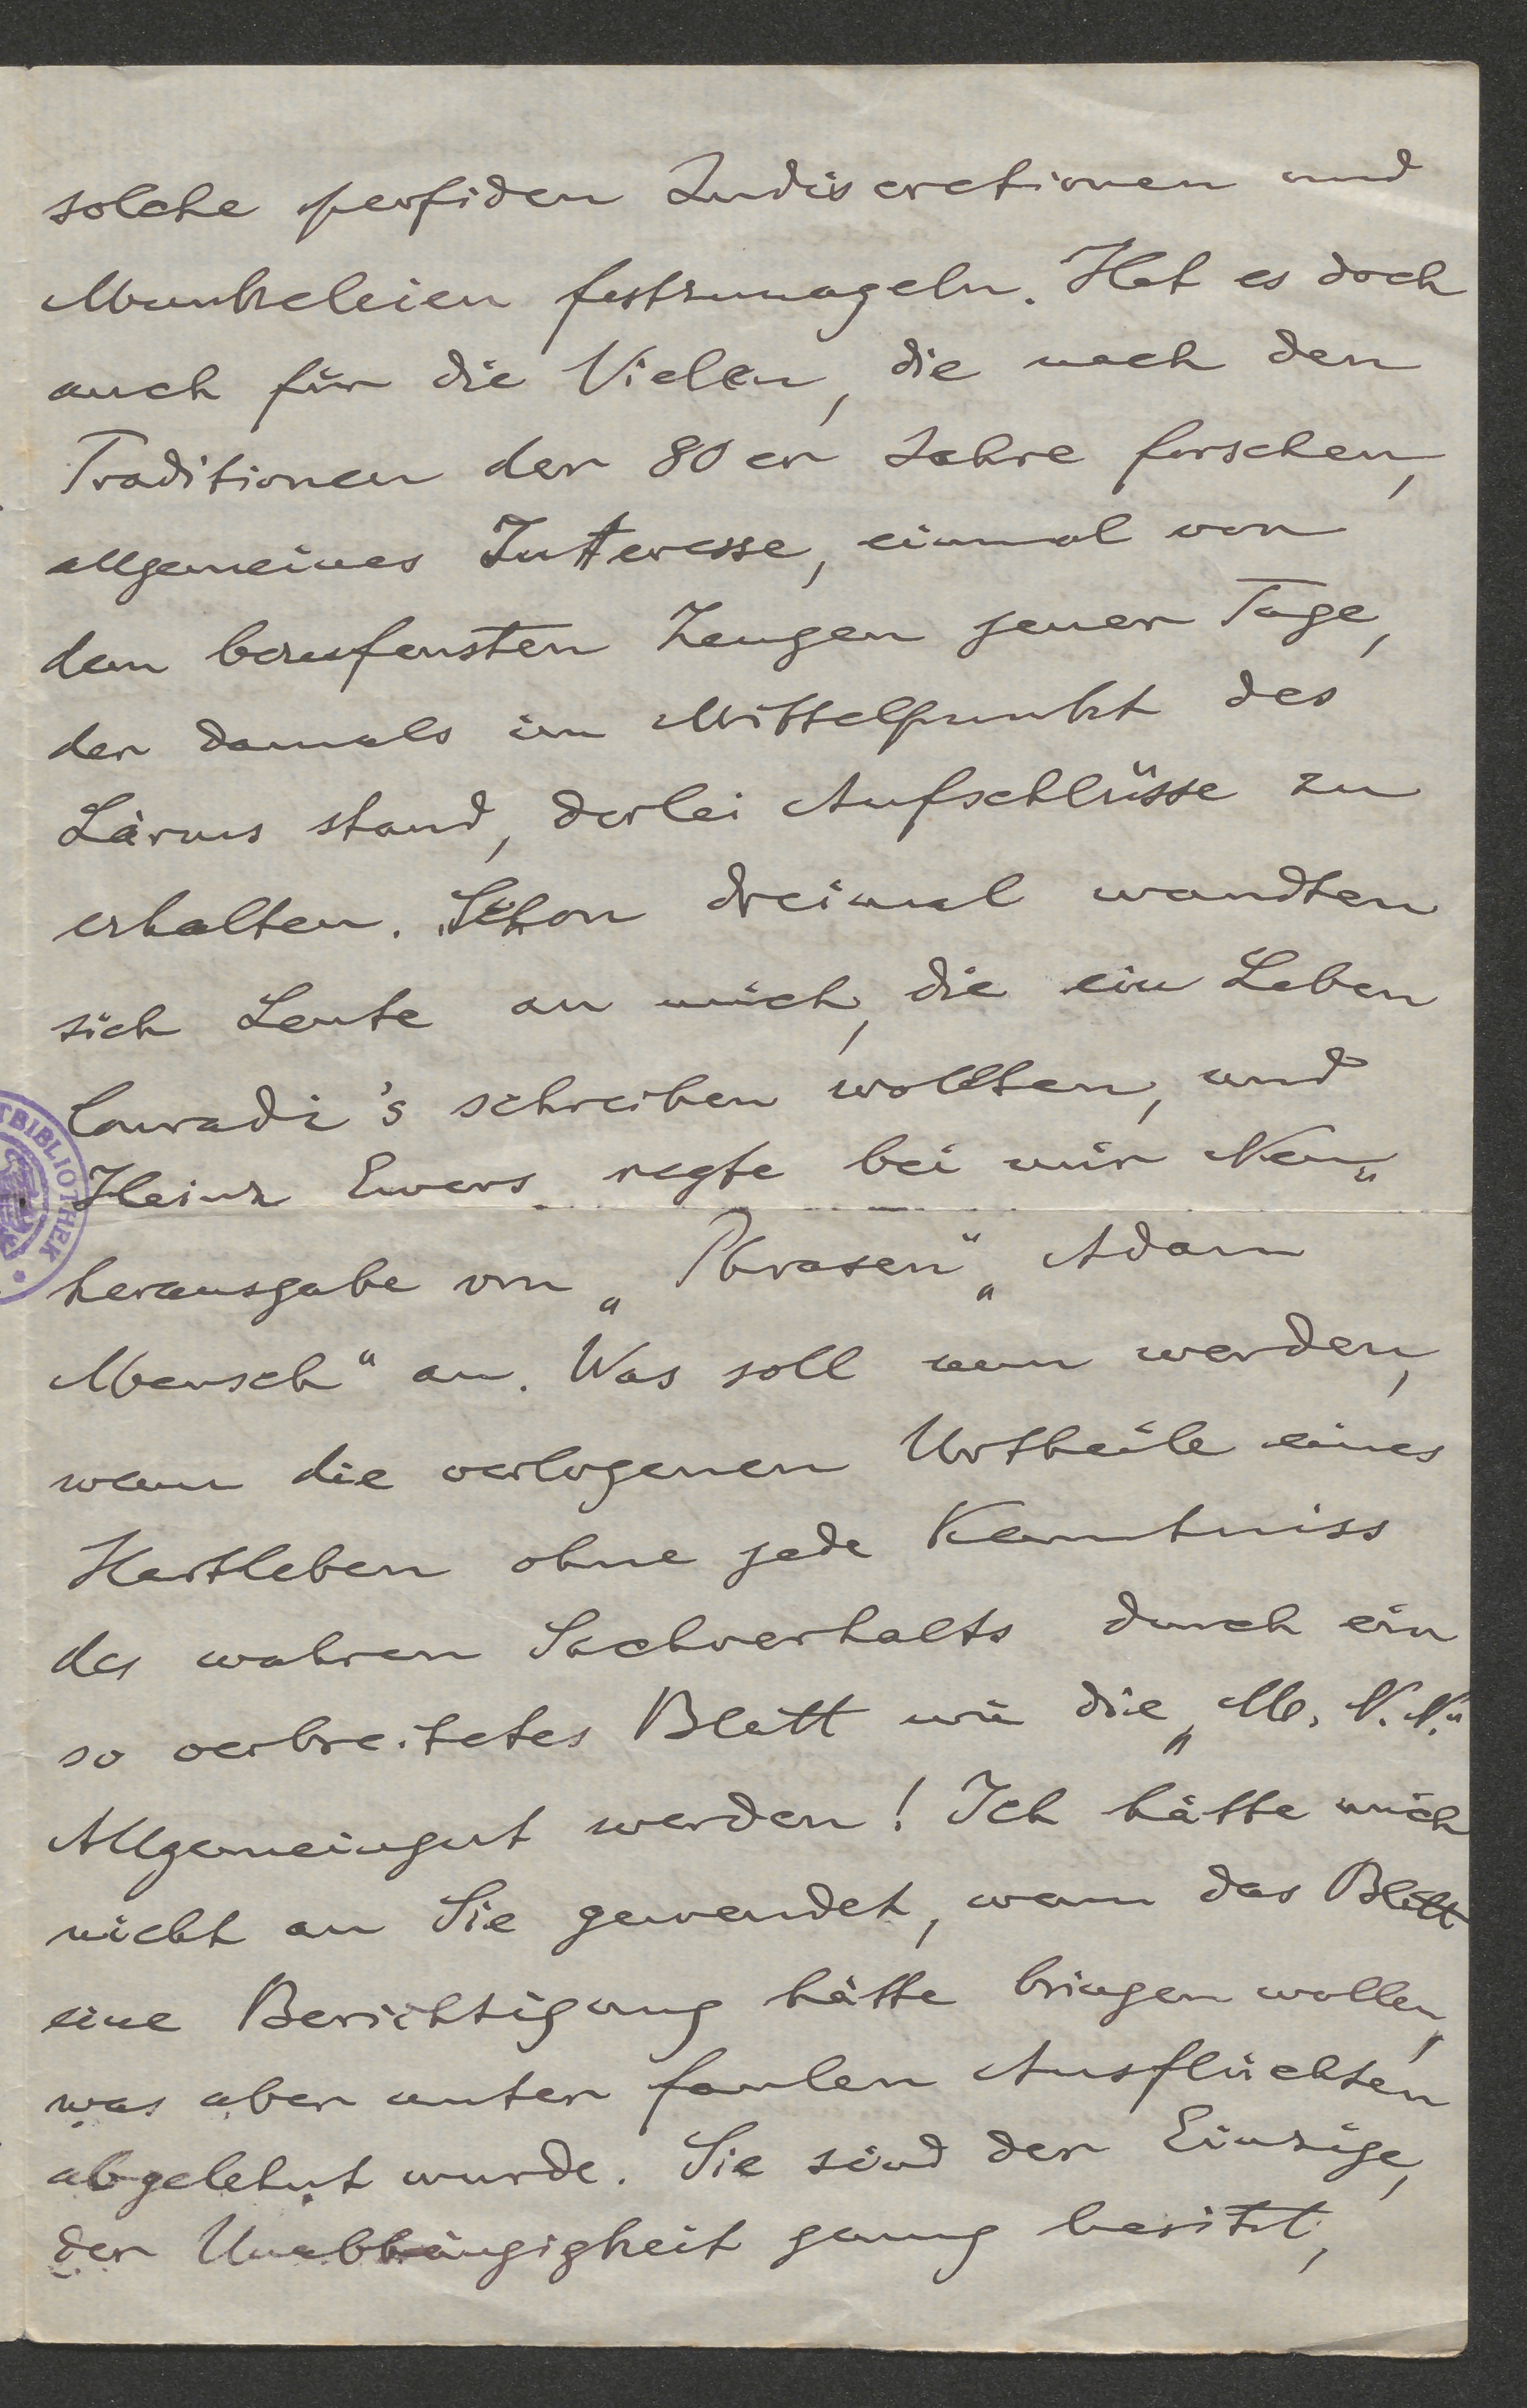 solche perfiden Indiscretionen und
Munkeleien festzunageln. Hat es doch
auch für die Vielen, die nach den
Traditionen der 80er Jahre forschen,
allgemeines Interesse, einmal von
dem berufensten Zeugen jener Tage,
der damals im Mittelpunkt des
Lärms stand, derlei Aufschlüsse zu
erhalten. Schon dreimal wandten
sich Leute an mich, die ein Leben
Conradi's schreiben wollten, und
Heinz Ewers regte bei mir Neu„
herausgabe von „Phrasen“ „Adam
Mensch“ an. Was soll nun werden,
wenn die verlogenen Urtheile eines
Hartleben ohne jede Kenntniss
des wahren Sachverhalts durch ein
so verbreitetes Blatt wie die „M. N. N.“
Allgemeingut werden! Ich hätte mich
nicht an Sie gewendet, wenn das Blatt
eine Berichtigung hätte bringen wollen,
was aber unter faulen Ausflüchten
abgelehnt wurde. Sie sind der Einzige,
der Unabhängigkeit genug besitzt,
TBIBLIOTHEK